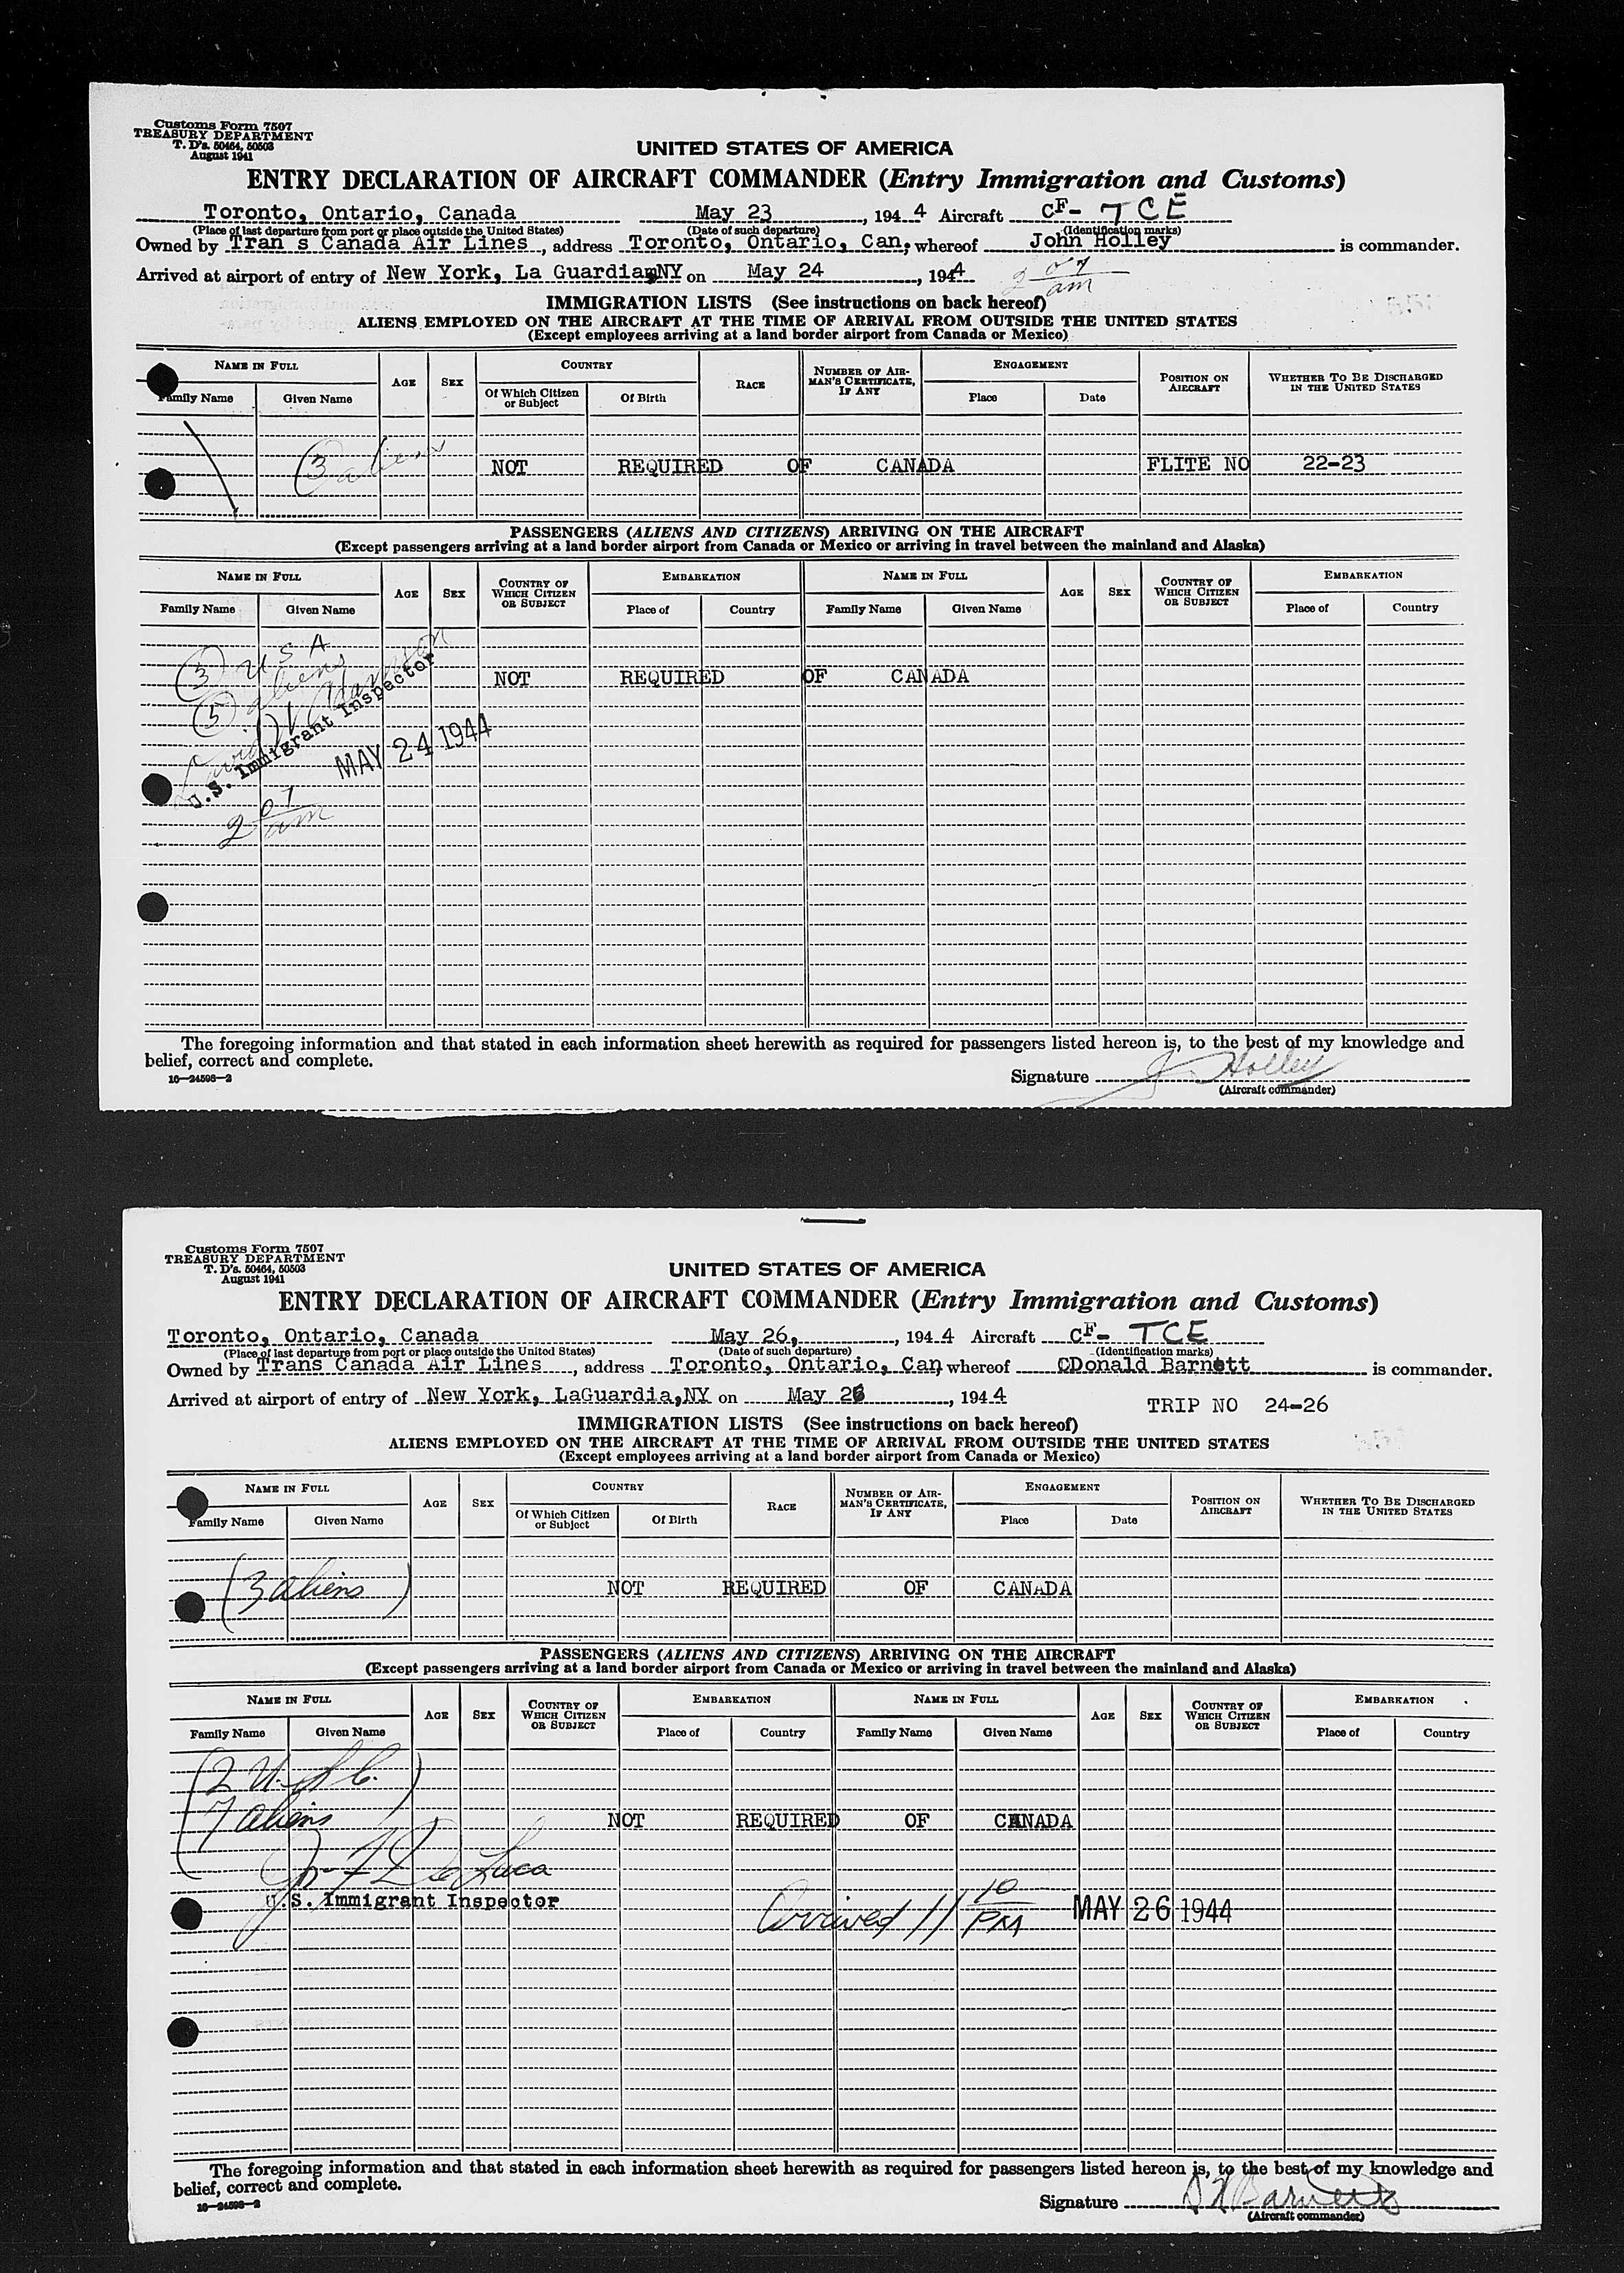 Customs Form 7507
TREASURY DEPARTMENT
T. D's. 50464, 50503
August 1941
UNITED STATES OF AMERICA
ENTRY DECLARATION OF AIRCRAFT COMMANDER (Entry Immigration and Customs)
Toronto, Ontario, Canada May 23, 1944 Aircraft CF- TCE
(Place of last departure from port or place outside the United States) (Date of such departure) (Identification marks)
Owned by Tran s Canada Air Lines, address Toronto, Ontario, Can, whereof John Holley is commander.
Arrived at airport of entry of New York, La Guardia, NY on May 24, 1944 2 07 am
IMMIGRATION LISTS (See instructions on back hereof)
ALIENS EMPLOYED ON THE AIRCRAFT AT THE TIME OF ARRIVAL FROM OUTSIDE THE UNITED STATES
(Except employees arriving at a land border airport from Canada or Mexico)
NAME IN FULL AGE SEX COUNTRY RACE NUMBER OF AIRMAN'S CERTIFICATE, IF ANY ENGAGEMENT POSITION ON AIRCRAFT WHETHER TO BE DISCHARGED IN THE UNITED STATES
Family Name Given Name Of Which Citizen or Subject Of Birth Place Date
(3 aliens NOT REQUIRED OF CANADA FLITE NO 22-23
PASSENGERS (ALIENS AND CITIZENS) ARRIVING ON THE AIRCRAFT
(Except passengers arriving at a land border airport from Canada or Mexico or arriving in travel between the mainland and Alaska)
NAME IN FULL AGE SEX COUNTRY OF WHICH CITIZEN OR SUBJECT EMBARKATION NAME IN FULL AGE SEX COUNTRY OF WHICH CITIZEN OR SUBJECT EMBARKATION
Family Name Given Name Place of Country Family Name Given Name Place of Country
(3) USA
(5) aliens NOT REQUIRED OF CANADA
U.S. Immigrant Inspector
MAY 24 1944
2 07 am
The foregoing information and that stated in each information sheet herewith as required for passengers listed hereon is, to the best of my knowledge and
belief, correct and complete.
16—24598—2
Signature J. Holley
(Aircraft commander)
Customs Form 7507
TREASURY DEPARTMENT
T. D's. 50464, 50503
August 1941
UNITED STATES OF AMERICA
ENTRY DECLARATION OF AIRCRAFT COMMANDER (Entry Immigration and Customs)
Toronto, Ontario, Canada May 26, 1944 Aircraft CF- TCE
(Place of last departure from port or place outside the United States) (Date of such departure) (Identification marks)
Owned by Trans Canada Air Lines, address Toronto, Ontario, Can, whereof CDonald Barnett is commander.
Arrived at airport of entry of New York, LaGuardia, NY on May 26, 1944 TRIP NO 24-26
IMMIGRATION LISTS (See instructions on back hereof)
ALIENS EMPLOYED ON THE AIRCRAFT AT THE TIME OF ARRIVAL FROM OUTSIDE THE UNITED STATES
(Except employees arriving at a land border airport from Canada or Mexico)
NAME IN FULL AGE SEX COUNTRY RACE NUMBER OF AIRMAN'S CERTIFICATE, IF ANY ENGAGEMENT POSITION ON AIRCRAFT WHETHER TO BE DISCHARGED IN THE UNITED STATES
Family Name Given Name Of Which Citizen or Subject Of Birth Place Date
(3 aliens) NOT REQUIRED OF CANADA
PASSENGERS (ALIENS AND CITIZENS) ARRIVING ON THE AIRCRAFT
(Except passengers arriving at a land border airport from Canada or Mexico or arriving in travel between the mainland and Alaska)
NAME IN FULL AGE SEX COUNTRY OF WHICH CITIZEN OR SUBJECT EMBARKATION NAME IN FULL AGE SEX COUNTRY OF WHICH CITIZEN OR SUBJECT EMBARKATION
Family Name Given Name Place of Country Family Name Given Name Place of Country
(2 U.S.C.)
7 aliens NOT REQUIRED OF CANADA
De Luca
U.S. Immigrant Inspector
Arrived 11 10 PM MAY 26 1944
The foregoing information and that stated in each information sheet herewith as required for passengers listed hereon is, to the best of my knowledge and
belief, correct and complete.
16—24598—2
Signature D Barnett
(Aircraft commander)